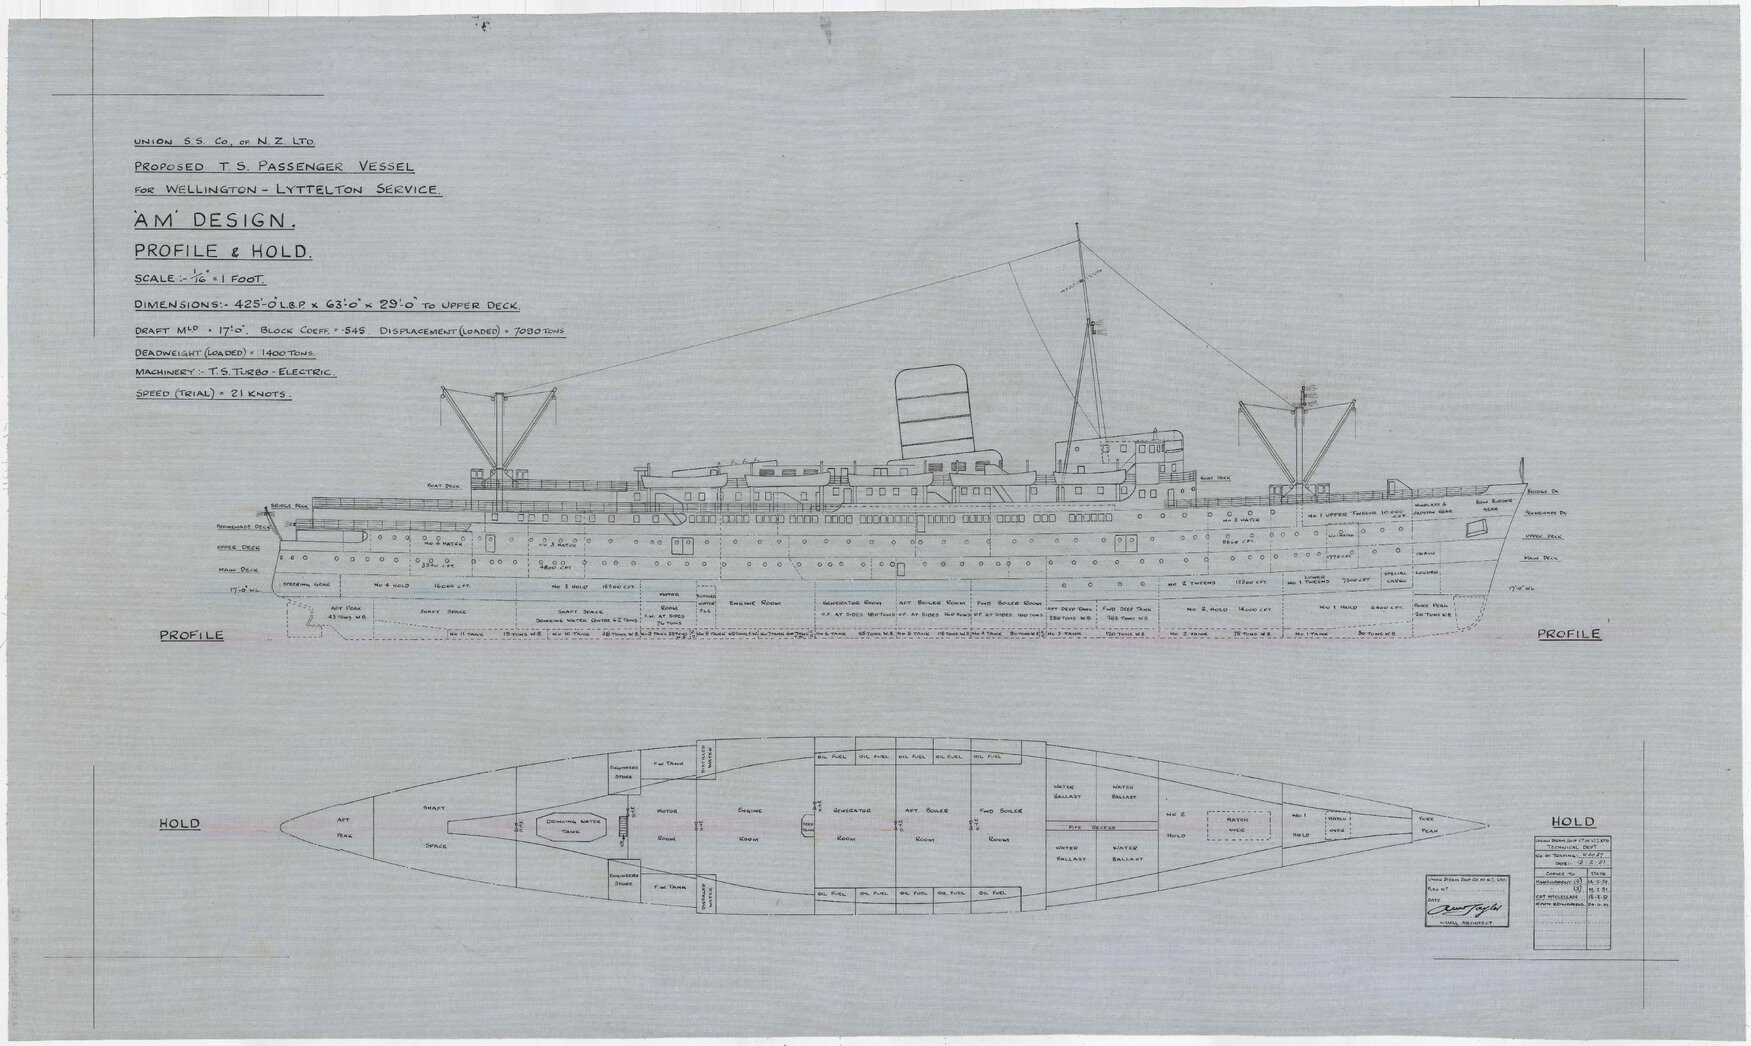 UNION S.S. Co., OF N.Z. LTD.
PROPOSED T.S. PASSENGER VESSEL
FOR WELLINGTON - LYTTELTON SERVICE.
'AM' DESIGN.
PROFILE & HOLD.
SCALE :- 1/16" = 1 FOOT.
DIMENSIONS:- 425'-0" L.B.P. x 63'-0" x 29'-0" TO UPPER DECK.
DRAFT MLD = 17'-0". BLOCK COEFF. = .545 DISPLACEMENT (LOADED) = 7090 TONS
DEADWEIGHT (LOADED) = 1400 TONS.
MACHINERY :- T.S. TURBO-ELECTRIC.
SPEED (TRIAL) = 21 KNOTS.
BOAT DECK
BOAT DECK
BRIDGE DECK
BRIDGE DK
PROMENADE DECK
PROMENADE DK
UPPER DECK
UPPER DECK
MAIN DECK
MAIN DECK
17'-0" WL
17'-0" WL
No 4 HATCH
No 3 HATCH
4800 CFT
No 2 HATCH
No 1 UPPER TWEENS 10000 CFT.
WINDLASS &
CAPSTAN GEAR
BOW RUDDER
GEAR
No 1 HATCH
CHAIN
LOCKER
STEERING GEAR
No 4 HOLD
No 3 HOLD
No 2 TWEENS
LOWER
No 1 TWEENS
SPECIAL
CARGO
AFT PEAK
43 TONS W.B.
SHAFT SPACE
SHAFT SPACE
DRINKING WATER CENTRE 62 TONS
MOTOR
ROOM
F.W. AT SIDES
76 TONS
DISTILLED
WATER
ENGINE ROOM
GENERATOR ROOM
O.F. AT SIDES 180 TONS
AFT BOILER ROOM
O.F. AT SIDES 160 TONS
FWD BOILER ROOM
O.F. AT SIDES 160 TONS
AFT DEEP TANK
FWD DEEP TANK
No 2 HOLD 14000 CFT.
No 1 HOLD 6400 CFT.
FORE PEAK
20 TONS W.B.
No 11 TANK
No 10 TANK
No 3 TANK
120 TONS W.B.
No 2 TANK
75 TONS W.B.
No 1 TANK
30 TONS W.B.
PROFILE
PROFILE
HOLD
AFT
PEAK
SHAFT
SPACE
DRINKING WATER
TANK
ENGINEERS
STORE
F.W. TANK
DISTILLED
WATER
MOTOR
ROOM
ENGINE
ROOM
FEED
TANK
GENERATOR
ROOM
AFT BOILER
ROOM
FWD BOILER
ROOM
OIL FUEL OIL FUEL OIL FUEL OIL FUEL OIL FUEL
WATER
BALLAST
WATER
BALLAST
PIPE RECESS
WATER
BALLAST
WATER
BALLAST
No 2
HOLD
HATCH
OVER
No 1
HOLD
HATCH
OVER
FORE
PEAK
ENGINEERS
STORE
F.W. TANK
DISTILLED
WATER
OIL FUEL OIL FUEL OIL FUEL OIL FUEL OIL FUEL
HOLD
UNION STEAM SHIP CO. OF N.Z. LTD.
PLAN No
DATE
NAVAL ARCHITECT
UNION STEAM SHIP Co OF N.Z. LTD
TECHNICAL DEPT
No. OF TRACING:-
DATE:-
COPIES TO DATE
MANAGEMENT
CPT McCLELLAN
CAPT. EDWARDS